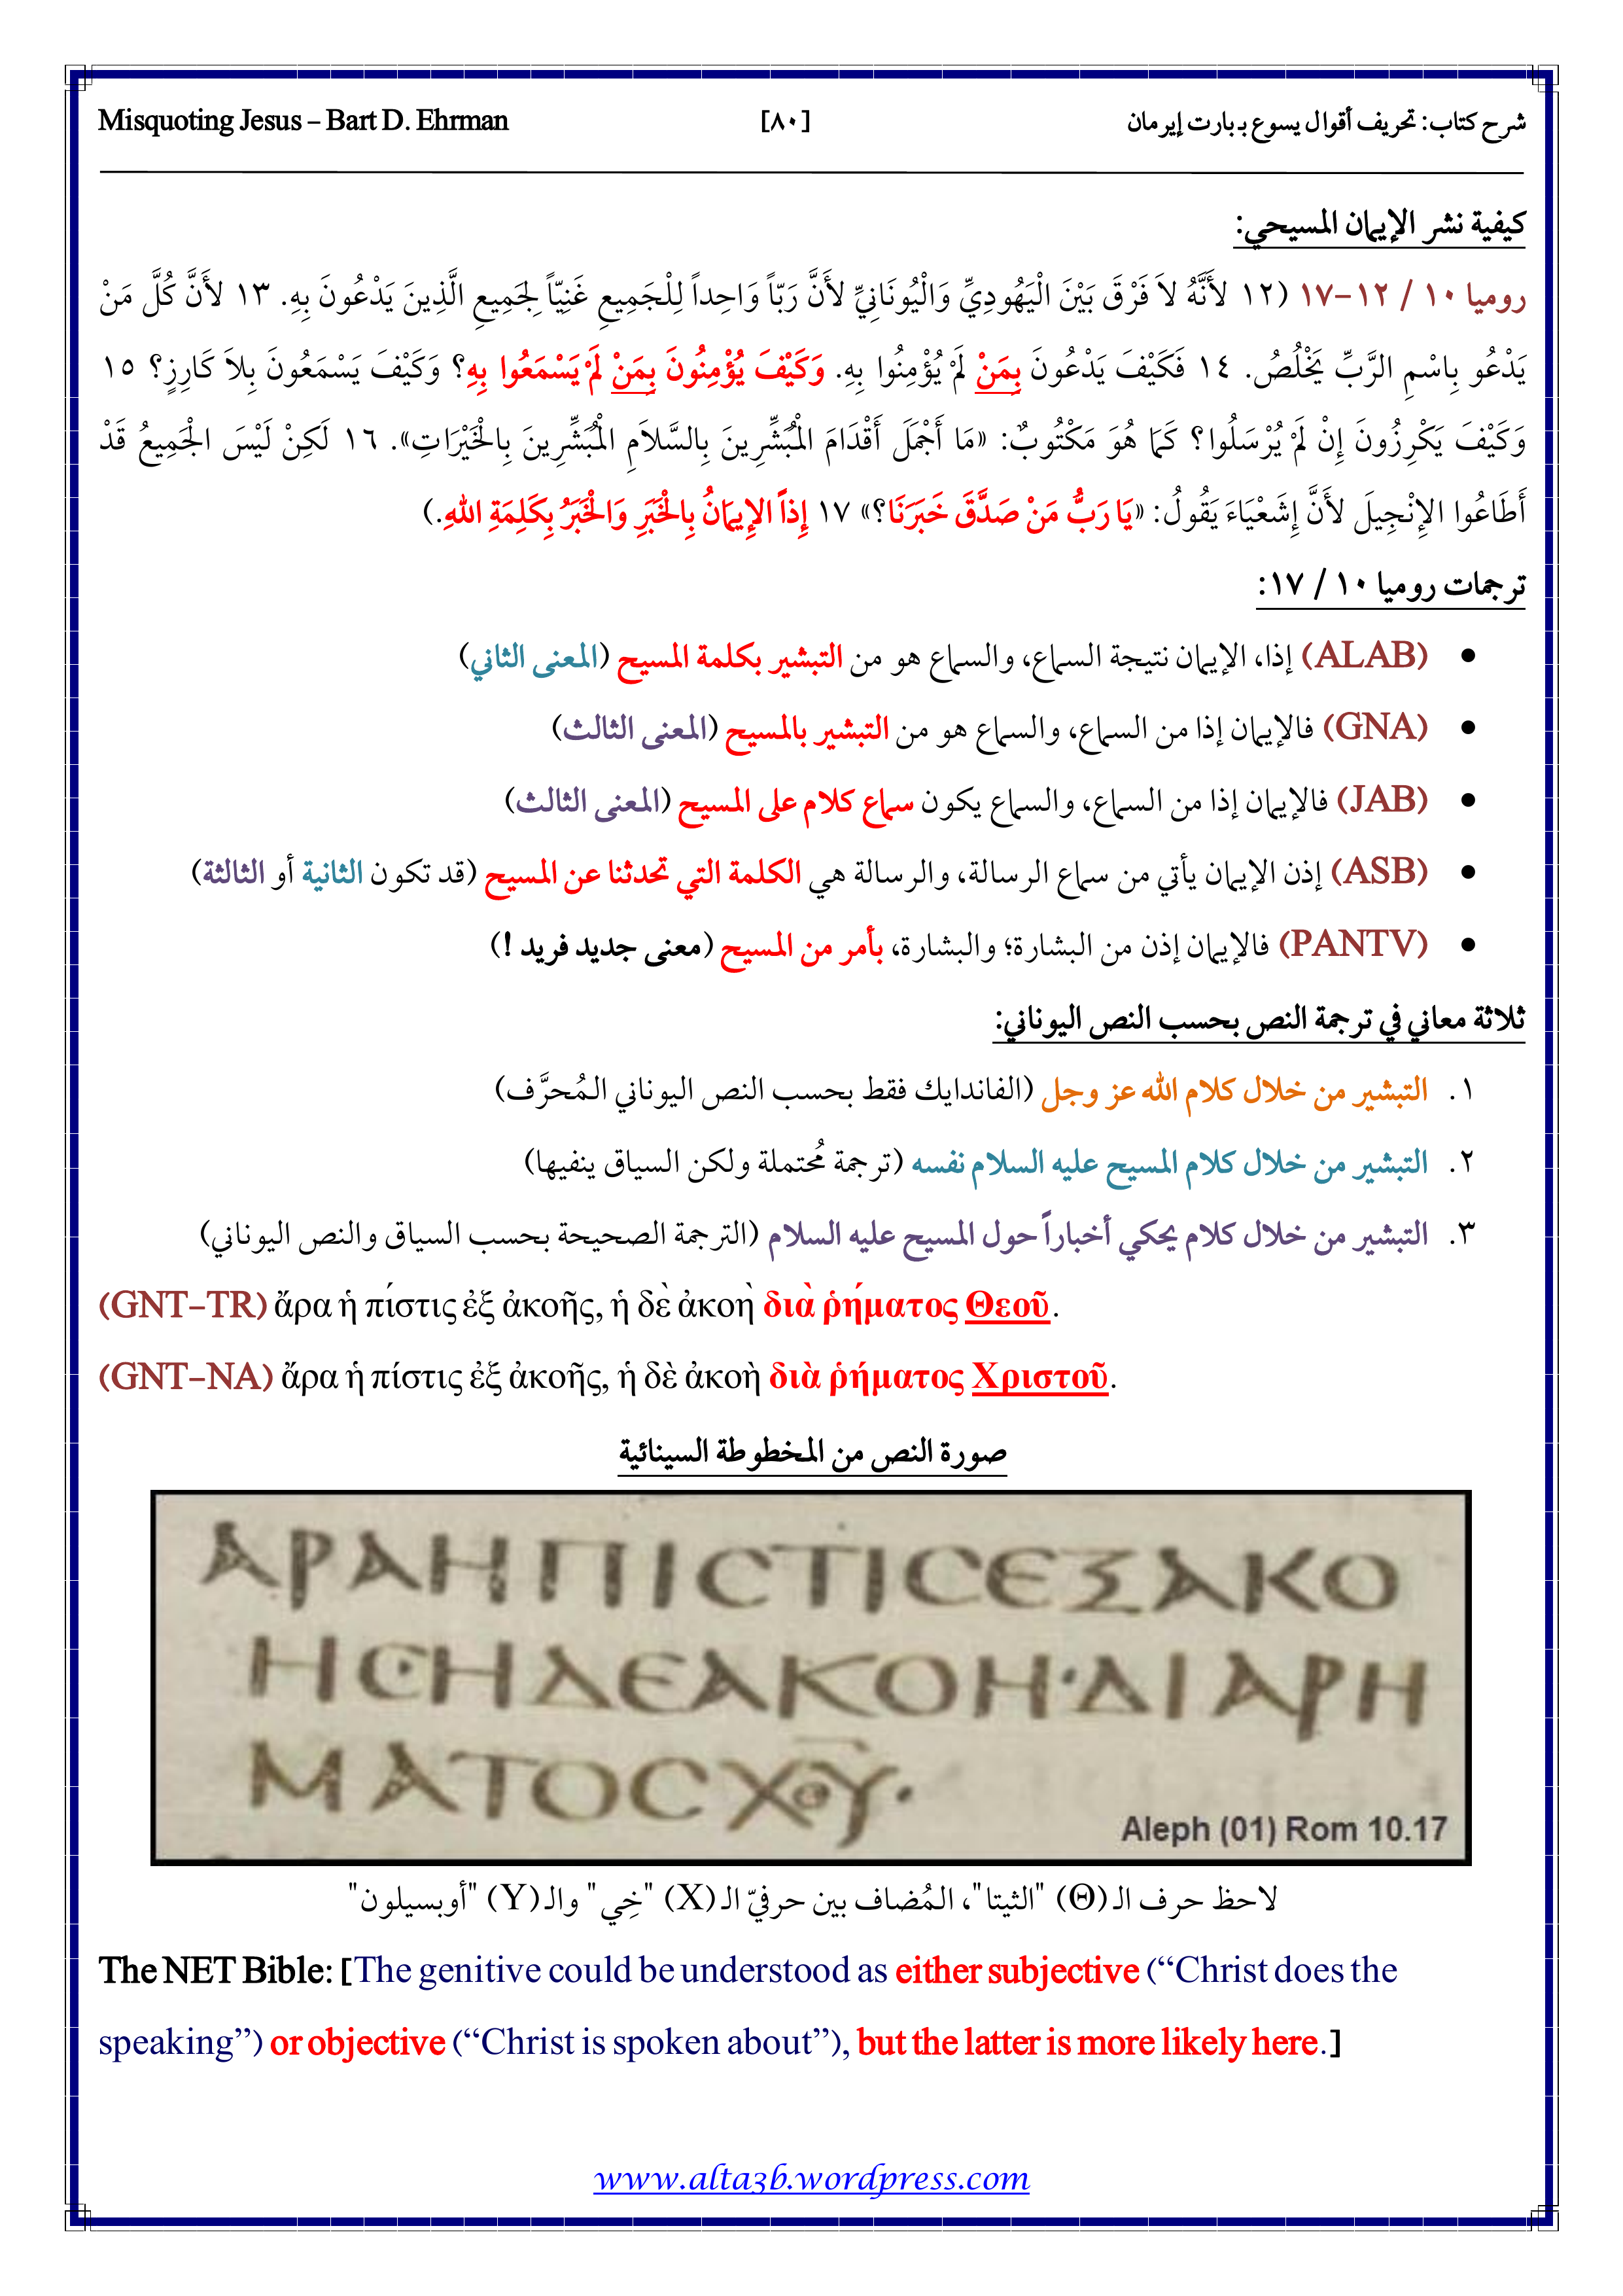 شرح كتاب: تحريف أقوال يسوع بـ بارت إيرمان [٨٠] Misquoting Jesus – Bart D. Ehrman
كيفية نشر الإيمان المسيحي:
روميا ١٠ / ١٢-١٧ (١٢ لأَنَّهُ لاَ فَرْقَ بَيْنَ الْيَهُودِيِّ وَالْيُونَانِيِّ لأَنَّ رَبّاً وَاحِداً لِلْجَمِيعِ غَنِيّاً لِجَمِيعِ الَّذِينَ يَدْعُونَ بِهِ. ١٣ لأَنَّ كُلَّ مَنْ
يَدْعُو بِاسْمِ الرَّبِّ يَخْلُصُ. ١٤ فَكَيْفَ يَدْعُونَ بِمَنْ لَمْ يُؤْمِنُوا بِهِ. وَكَيْفَ يُؤْمِنُونَ بِمَنْ لَمْ يَسْمَعُوا بِهِ؟ وَكَيْفَ يَسْمَعُونَ بِلاَ كَارِزٍ؟ ١٥
وَكَيْفَ يَكْرِزُونَ إِنْ لَمْ يُرْسَلُوا؟ كَمَا هُوَ مَكْتُوبٌ: «مَا أَجْمَلَ أَقْدَامَ الْمُبَشِّرِينَ بِالسَّلاَمِ الْمُبَشِّرِينَ بِالْخَيْرَاتِ». ١٦ لَكِنْ لَيْسَ الْجَمِيعُ قَدْ
أَطَاعُوا الإِنْجِيلَ لأَنَّ إِشَعْيَاءَ يَقُولُ: «يَا رَبُّ مَنْ صَدَّقَ خَبَرَنَا؟» ١٧ إِذاً الإِيمَانُ بِالْخَبَرِ وَالْخَبَرُ بِكَلِمَةِ اللهِ.)
ترجمات روميا ١٠ / ١٧:
• (ALAB) إذا، الإيمان نتيجة السماع، والسماع هو من التبشير بكلمة المسيح (المعنى الثاني)
• (GNA) فالإيمان إذا من السماع، والسماع هو من التبشير بالمسيح (المعنى الثالث)
• (JAB) فالإيمان إذا من السماع، والسماع يكون سماع كلام على المسيح (المعنى الثالث)
• (ASB) إذن الإيمان يأتي من سماع الرسالة، والرسالة هي الكلمة التي تحدثنا عن المسيح (قد تكون الثانية أو الثالثة)
• (PANTV) فالإيمان إذن من البشارة؛ والبشارة، بأمر من المسيح (معنى جديد فريد !)
ثلاثة معاني في ترجمة النص بحسب النص اليوناني:
١. التبشير من خلال كلام الله عز وجل (الفاندايك فقط بحسب النص اليوناني المُحرَّف)
٢. التبشير من خلال كلام المسيح عليه السلام نفسه (ترجمة مُحتملة ولكن السياق ينفيها)
٣. التبشير من خلال كلام يحكي أخباراً حول المسيح عليه السلام (الترجمة الصحيحة بحسب السياق والنص اليوناني)
(GNT-TR) ἄρα ἡ πίστις ἐξ ἀκοῆς, ἡ δὲ ἀκοὴ διὰ ῥήματος Θεοῦ.
(GNT-NA) ἄρα ἡ πίστις ἐξ ἀκοῆς, ἡ δὲ ἀκοὴ διὰ ῥήματος Χριστοῦ.
صورة النص من المخطوطة السينائية
ΑΡΑΗΠΙCΤΙCΕΞΑΚΟ
ΗCΗΔΕΑΚΟΗ·ΔΙΑΡΗ
ΜΑΤΟCΧΘΥ·
Aleph (01) Rom 10.17
لاحظ حرف الـ (Θ) "الثيتا"، المُضاف بين حرفيّ الـ (X) "خِي" والـ (Y) "أوبسيلون"
The NET Bible: [The genitive could be understood as either subjective (“Christ does the
speaking”) or objective (“Christ is spoken about”), but the latter is more likely here.]
www.alta3b.wordpress.com